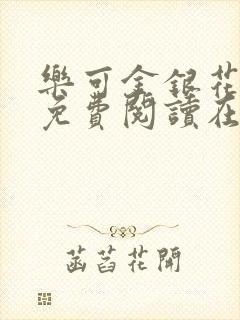 樂可金銀花
免費閱讀在
菡萏花開